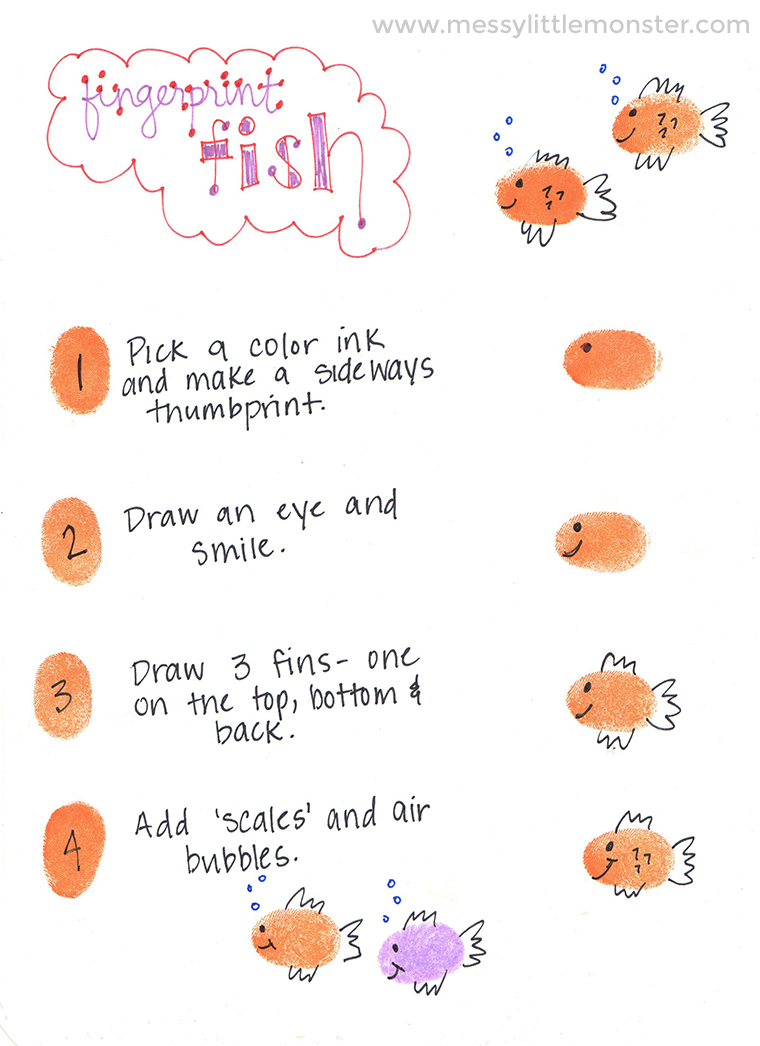 www.messylittlemonster.com
fingerprint
fish
1 Pick a color ink
and make a sideways
thumbprint.
2 Draw an eye and
smile.
3 Draw 3 fins- one
on the top, bottom &
back.
4 Add 'scales' and air
bubbles.